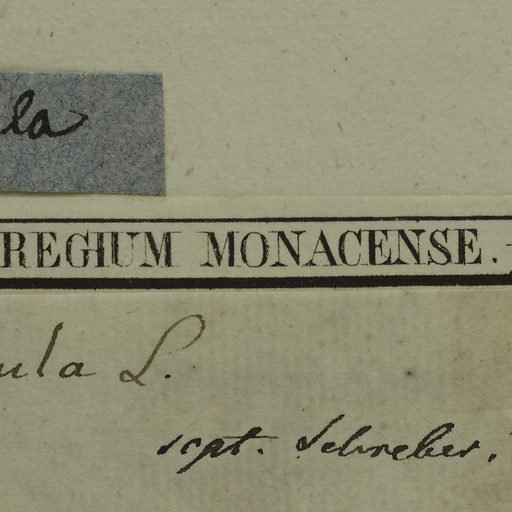 la
REGIUM MONACENSE.
ula L.
scpt. Schreber.